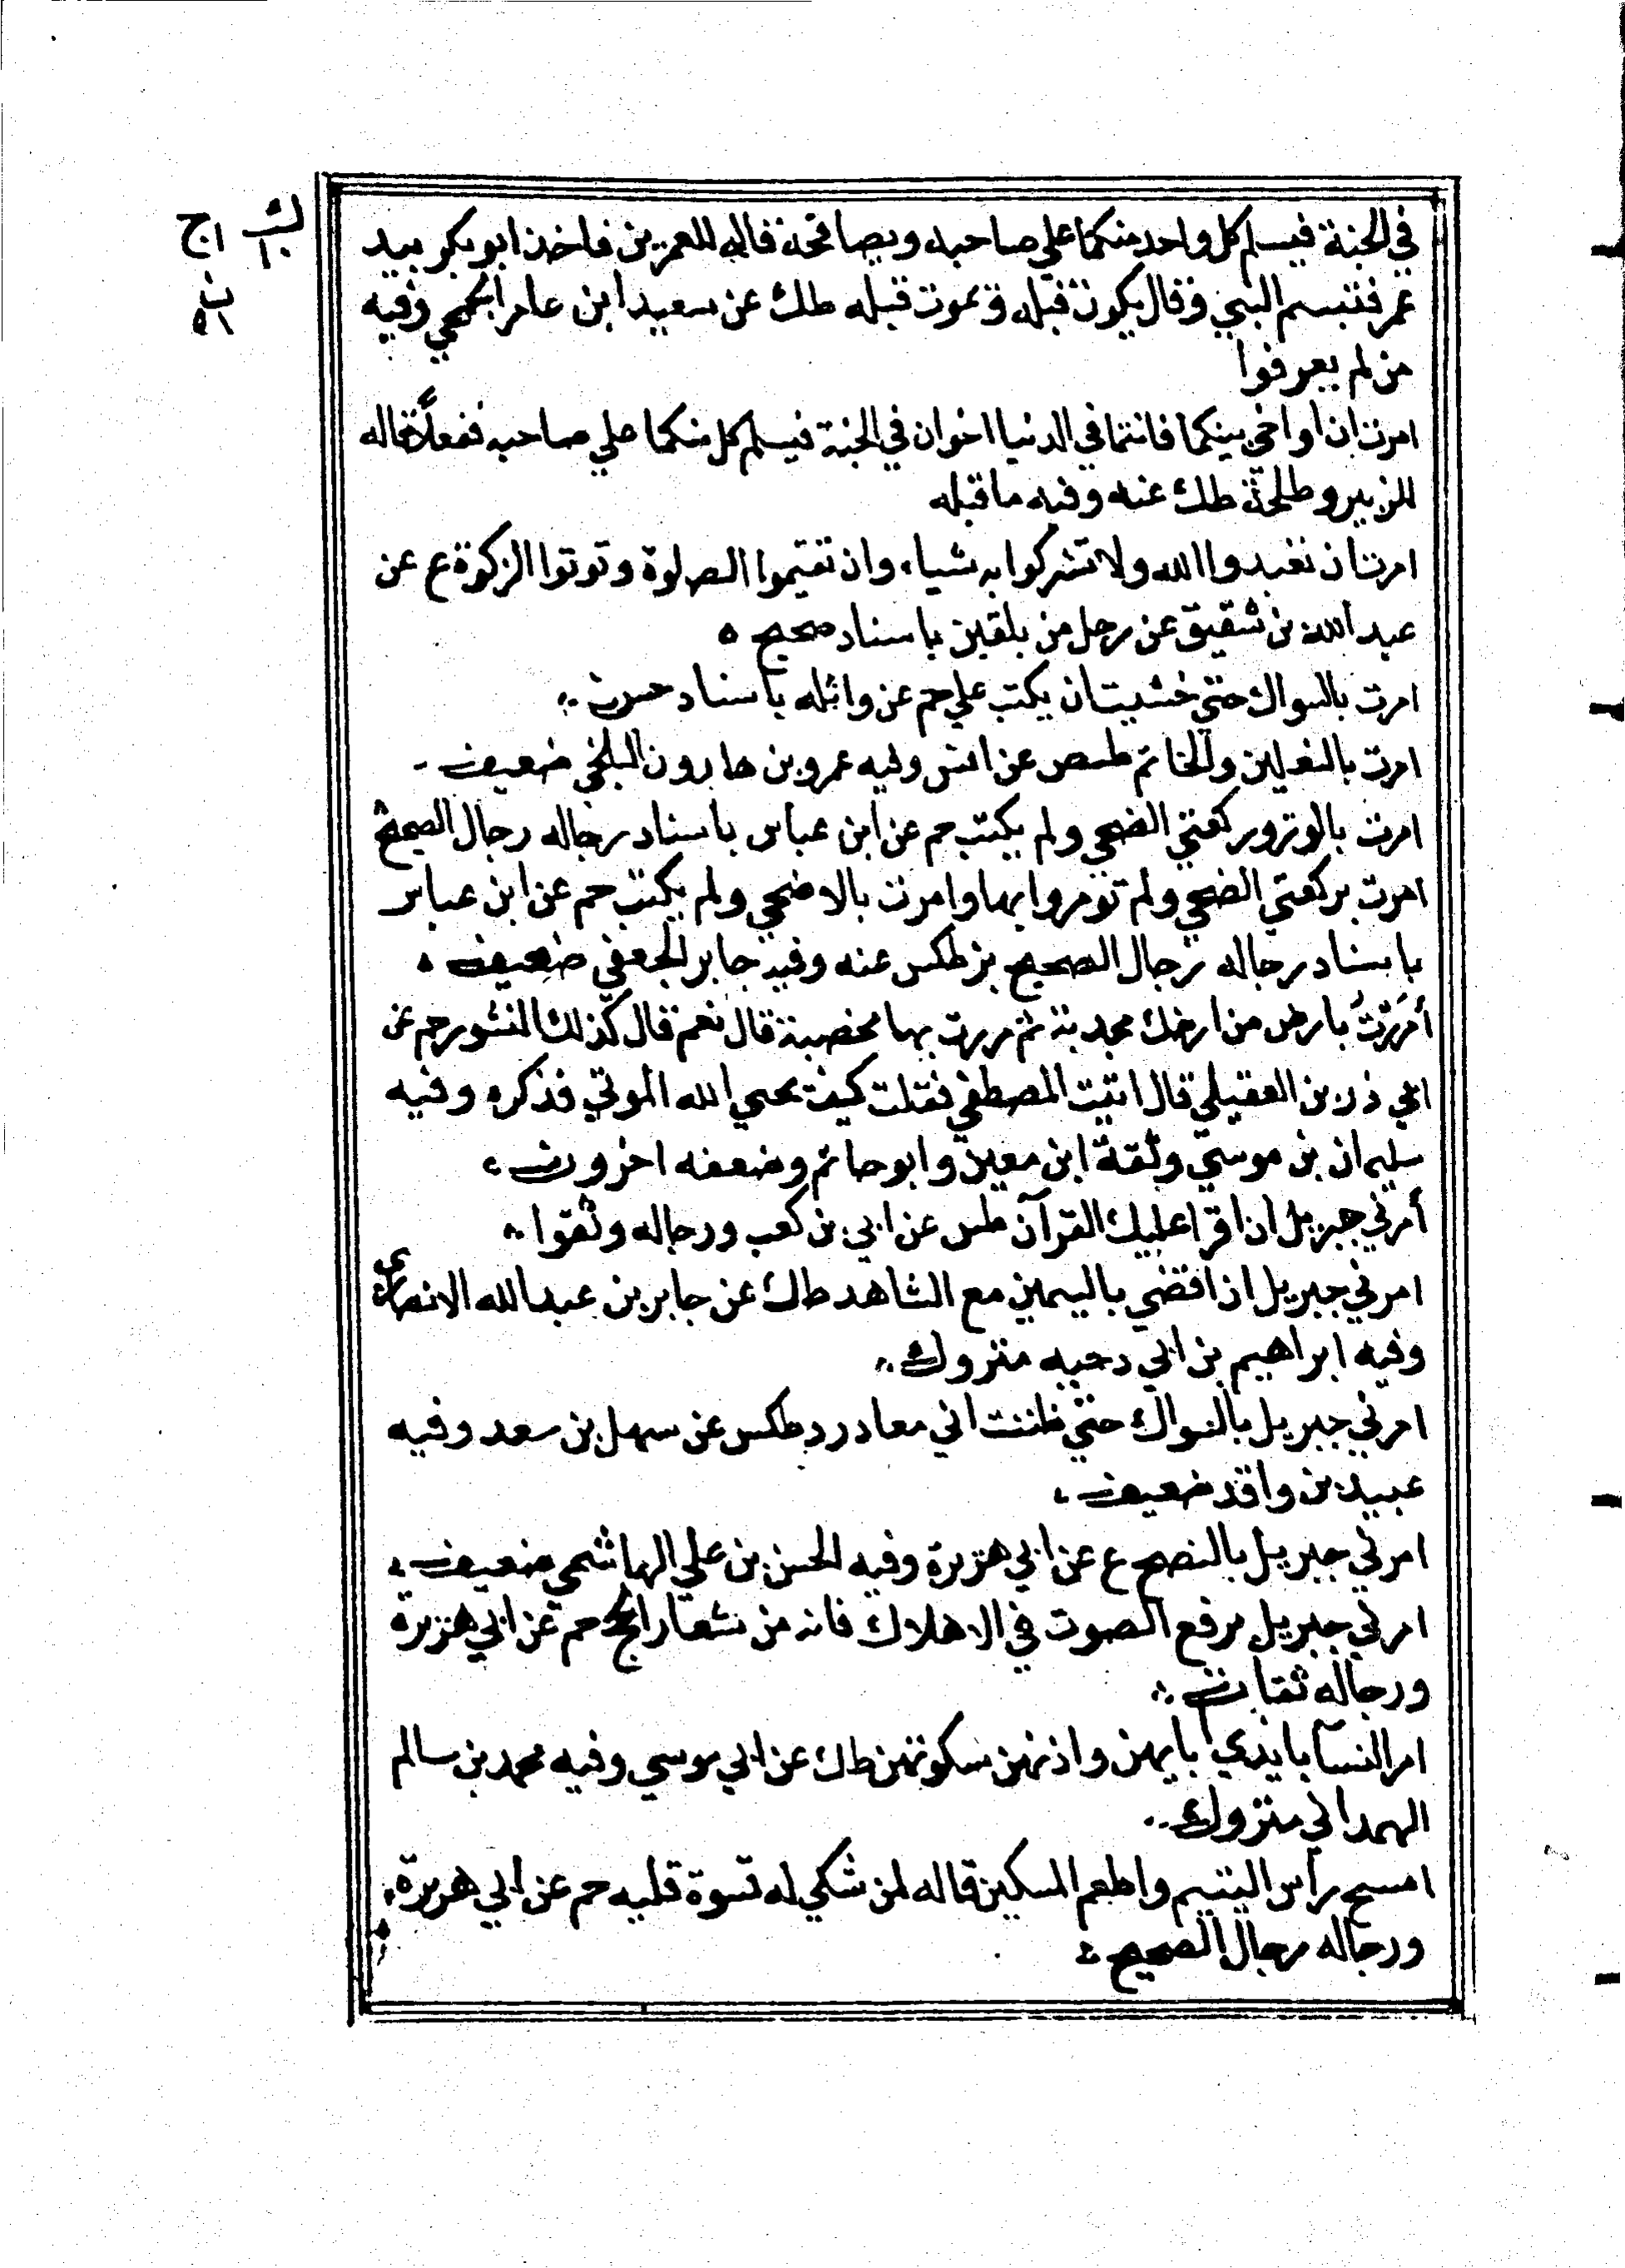 في الجنة فيسلم كل واحد منكما علي صاحبه ويصافحه قاله للعمرين فاخذ ابو بكر بيد
عمر فتبسم النبي وقال يكون قبله ويموت قبله طك عن سعيد ابن عامر الجمحي وفيه
من لم يعرفوا
امرت ان اواخي بينكما فانتما في الدنيا اخوان في الجنة فيسلم كل منكما علي صاحبه ففعلا قاله
للزبير وطلحة طك عنه وفيه ما قبله
امرت ان تعبدوا الله ولا تشركوا به شيا، وان تقيموا الصلوة وتوتوا الزكوة ع عن
عبد الله بن شقيق عن رجل من بلقين باسناد صحيح ه
امرت بالسواك حتي خشيت ان يكتب علي حم عن واثله باسناد حسن
امرت بالنعلين والخاتم طسص عن انس وفيه عمرو بن هارون البلخي ضعيف
امرت بالوتر وركعتي الضحي ولم يكتب حم عن ابن عباس باسناد رجاله رجال الصحيح
امرت بركعتي الضحي ولم تومروا بها وامرت بالاضحي ولم يكتب حم عن ابن عباس
باسناد رجاله رجال الصحيح بز طكس عنه وفيه جابر الجعفي ضعيف
أمررت بارض من ارضك مجدبة ثم مررت بها مخصبة قال نعم قال كذلك النشور حم عن
ابي رزين العقيلي قال اتيت المصطفي فقلت كيف يحيي الله الموتي فذكره وفيه
سليمان بن موسي وثقة ابن معين وابو حاتم وضعفه اخرون
أمرني جبريل ان اقرا عليك القرآن طس عن ابي بن كعب ورجاله وثقوا
امرني جبريل ان اقضي باليمين مع الشاهد طك عن جابر بن عبد الله الانصاري
وفيه ابراهيم بن ابي حبيه متروك
امرني جبريل بالسواك حتي ظننت اني سادرد طكس عن سهل بن سعد وفيه
عبيد بن واقد ضعيف
امرني جبريل بالنضح ع عن ابي هريرة وفيه الحسن بن علي الهاشمي ضعيف
امرني جبريل برفع الصوت في الاهلاك فانه من شعار الحج حم عن ابي هريرة
ورجاله ثقات
امر النسآ بايدي آبايهن واذنهن سكوتهن طك عن ابي موسي وفيه محمد بن سالم
الهمداني متروك
امسح رأس اليتيم واطعم المسكين قاله لمن شكي له قسوة قلبه حم عن ابي هريرة
ورجاله رجال الصحيح